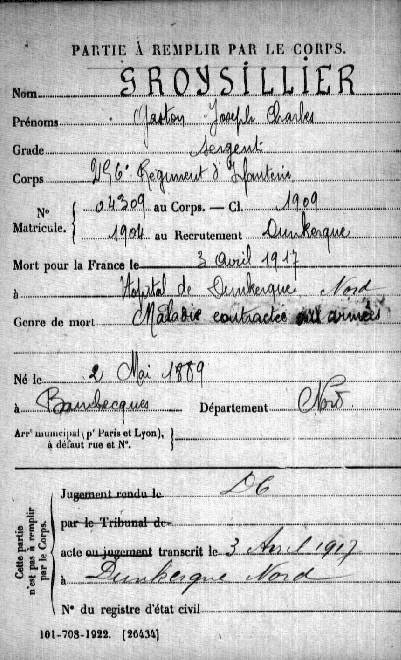 PARTIE À REMPLIR PAR LE CORPS.
Nom GROYSILLIER
Prénoms Gaston Joseph Charles
Grade Sergent
Corps Régiment d'Infanterie
N° Matricule. { 04309 au Corps. — Cl. 1909
1904 au Recrutement Dunkerque
Mort pour la France le 3 avril 1917
à Hopital de Dunkerque Nord
Genre de mort Maladie contractée aux armées
Né le 2 Mai 1889
à Bambecques Département Nord
Arrt municipal (pr Paris et Lyon), à défaut rue et N°. {
Cette partie n'est pas à remplir par le Corps.
Jugement rendu le DC
par le Tribunal de
acte ou jugement transcrit le 3 Avril 1917
à Dunkerque Nord
N° du registre d'état civil
101-708-1922. [26434]